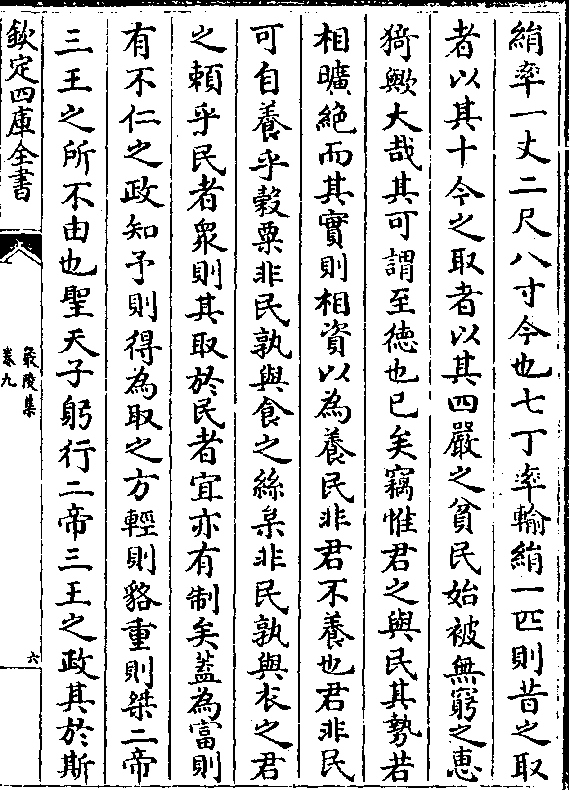 絹率一丈二尺八寸今也七丁率輸絹一匹則昔之取
者以其十今之取者以其四嚴之貧民始被無窮之惠
猗歟大哉其可謂至德也已矣竊惟君之與民其勢若
相曠絶而其實則相資以為養民非君不養也君非民
可自養乎榖粟非民孰與食之絲枲非民孰與衣之君
之頼乎民者衆則其取於民者宜亦有制矣蓋為富則
有不仁之政知予則得為取之方輕則貉重則桀二帝
三王之所不由也聖天子躬行二帝三王之政其於斯
欽定四庫全書
嚴陵集
卷九
六